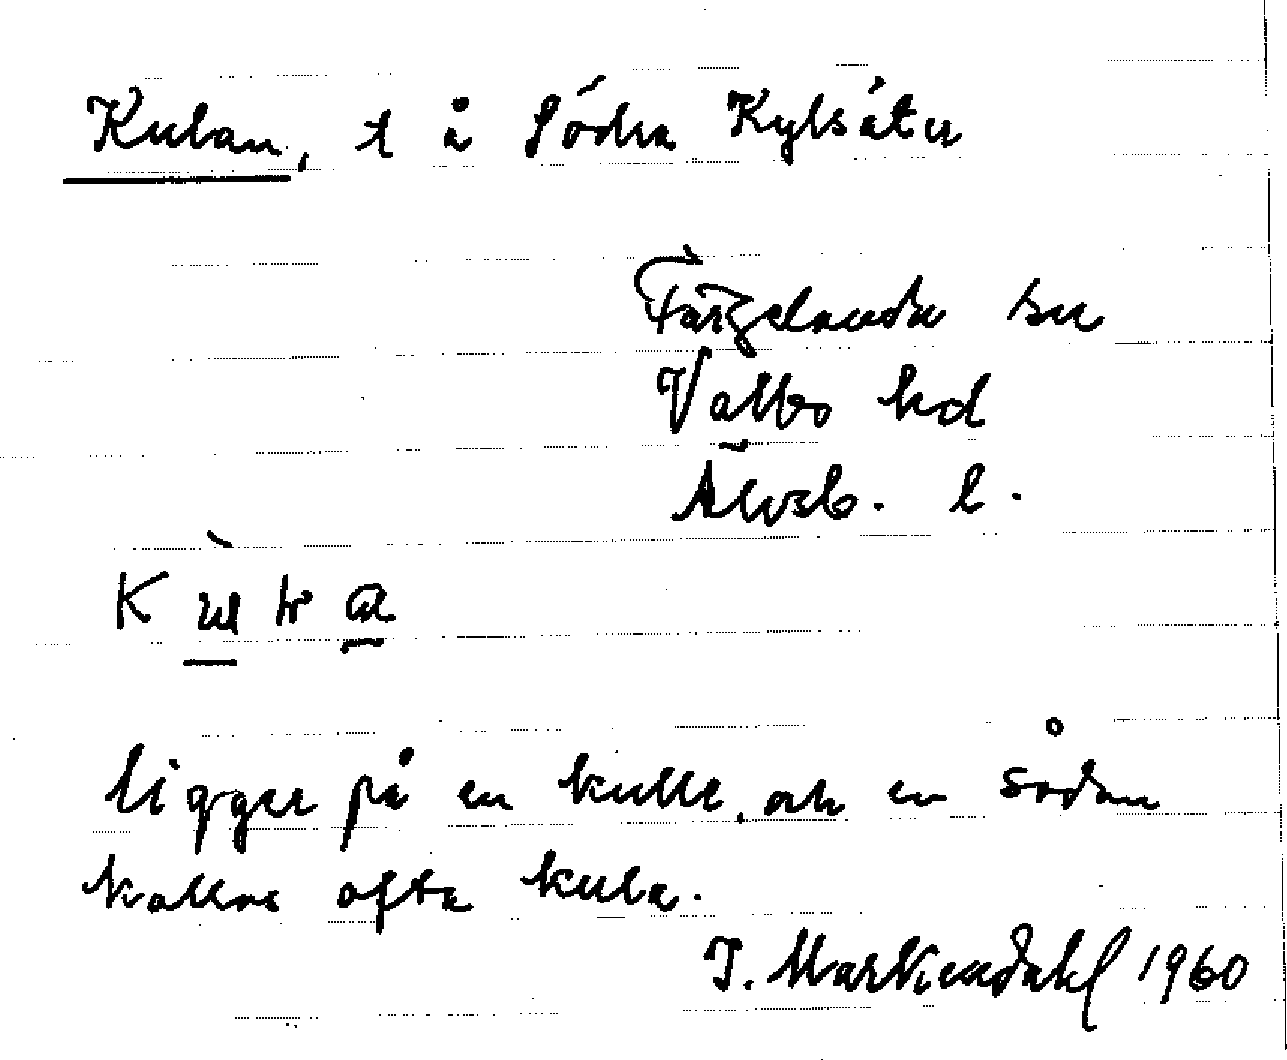 Kulan, t å Södra Kylsäter
Färgelanda sn
Valbo hd
Älvsb. l.
ligger på en kulle, och en sådan
kallas ofta kula.
J. Markendahl 1960